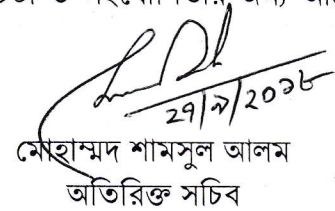 ২৭/৯/২০১৮
মোহাম্মদ শামসুল আলম
অতিরিক্ত সচিব